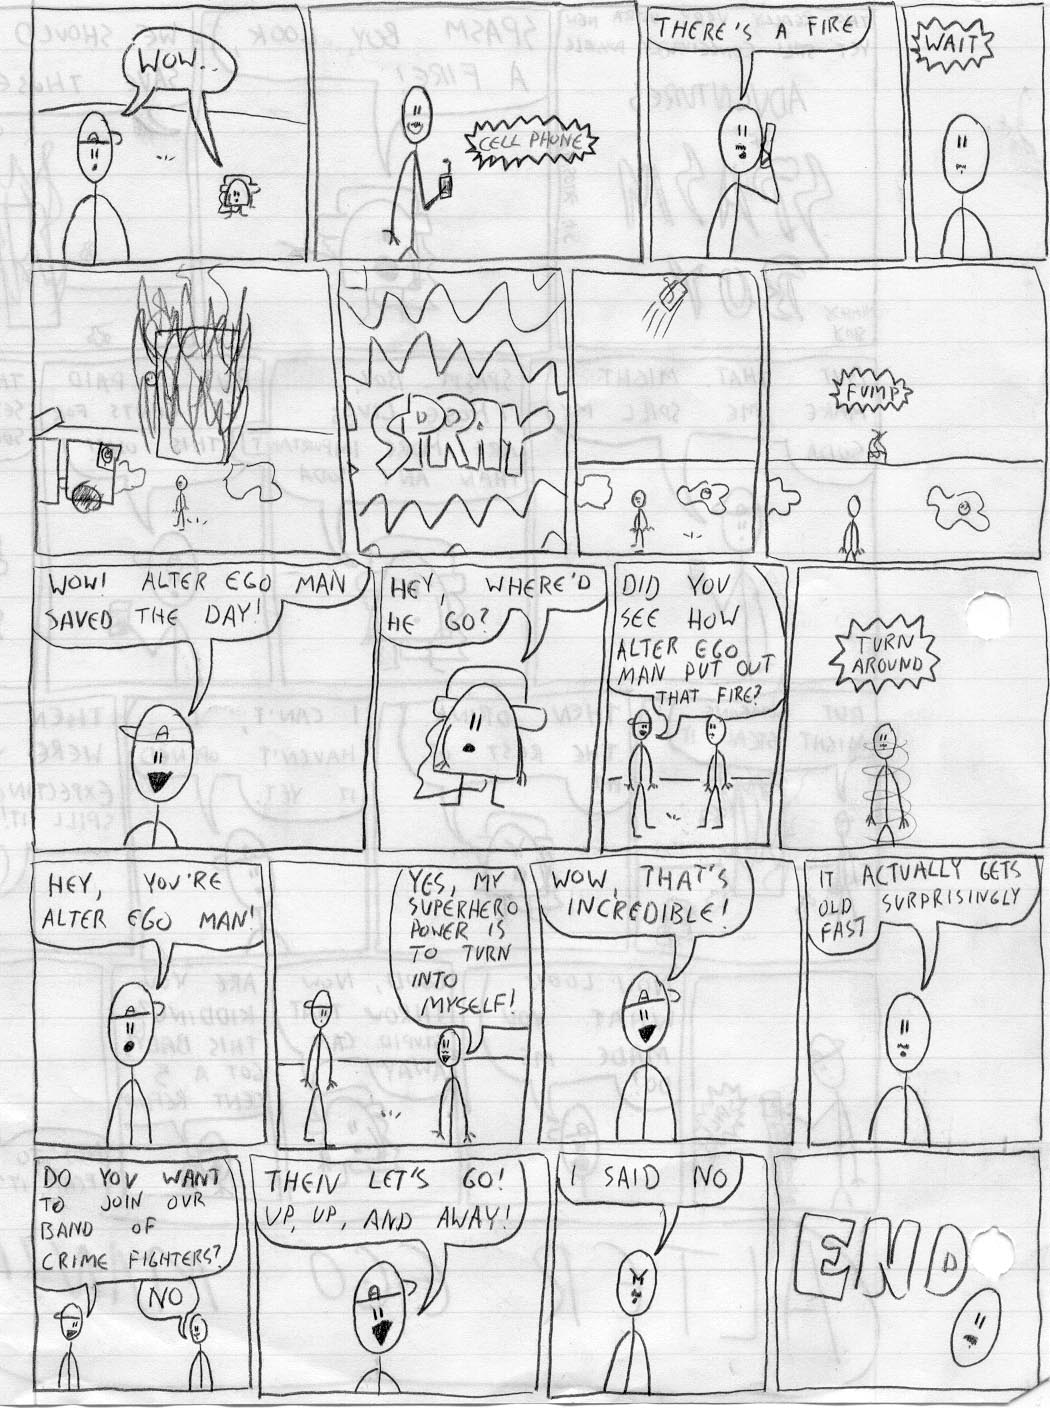 WOW..
CELL PHONE
THERE'S A FIRE
WAIT
SPRAY
FUMP
WOW! ALTER EGO MAN
SAVED THE DAY!
A
HEY, WHERE'D
HE GO?
DID YOU
SEE HOW
ALTER EGO
MAN PUT OUT
THAT FIRE?
TURN
AROUND
HEY, YOU'RE
ALTER EGO MAN!
A
YES, MY
SUPERHERO
POWER IS
TO TURN
INTO
MYSELF!
WOW, THAT'S
INCREDIBLE!
A
IT ACTUALLY GETS
OLD SURPRISINGLY
FAST
DO YOU WANT
TO JOIN OUR
BAND OF
CRIME FIGHTERS?
NO
THEN LET'S GO!
UP, UP, AND AWAY!
A
I SAID NO
END